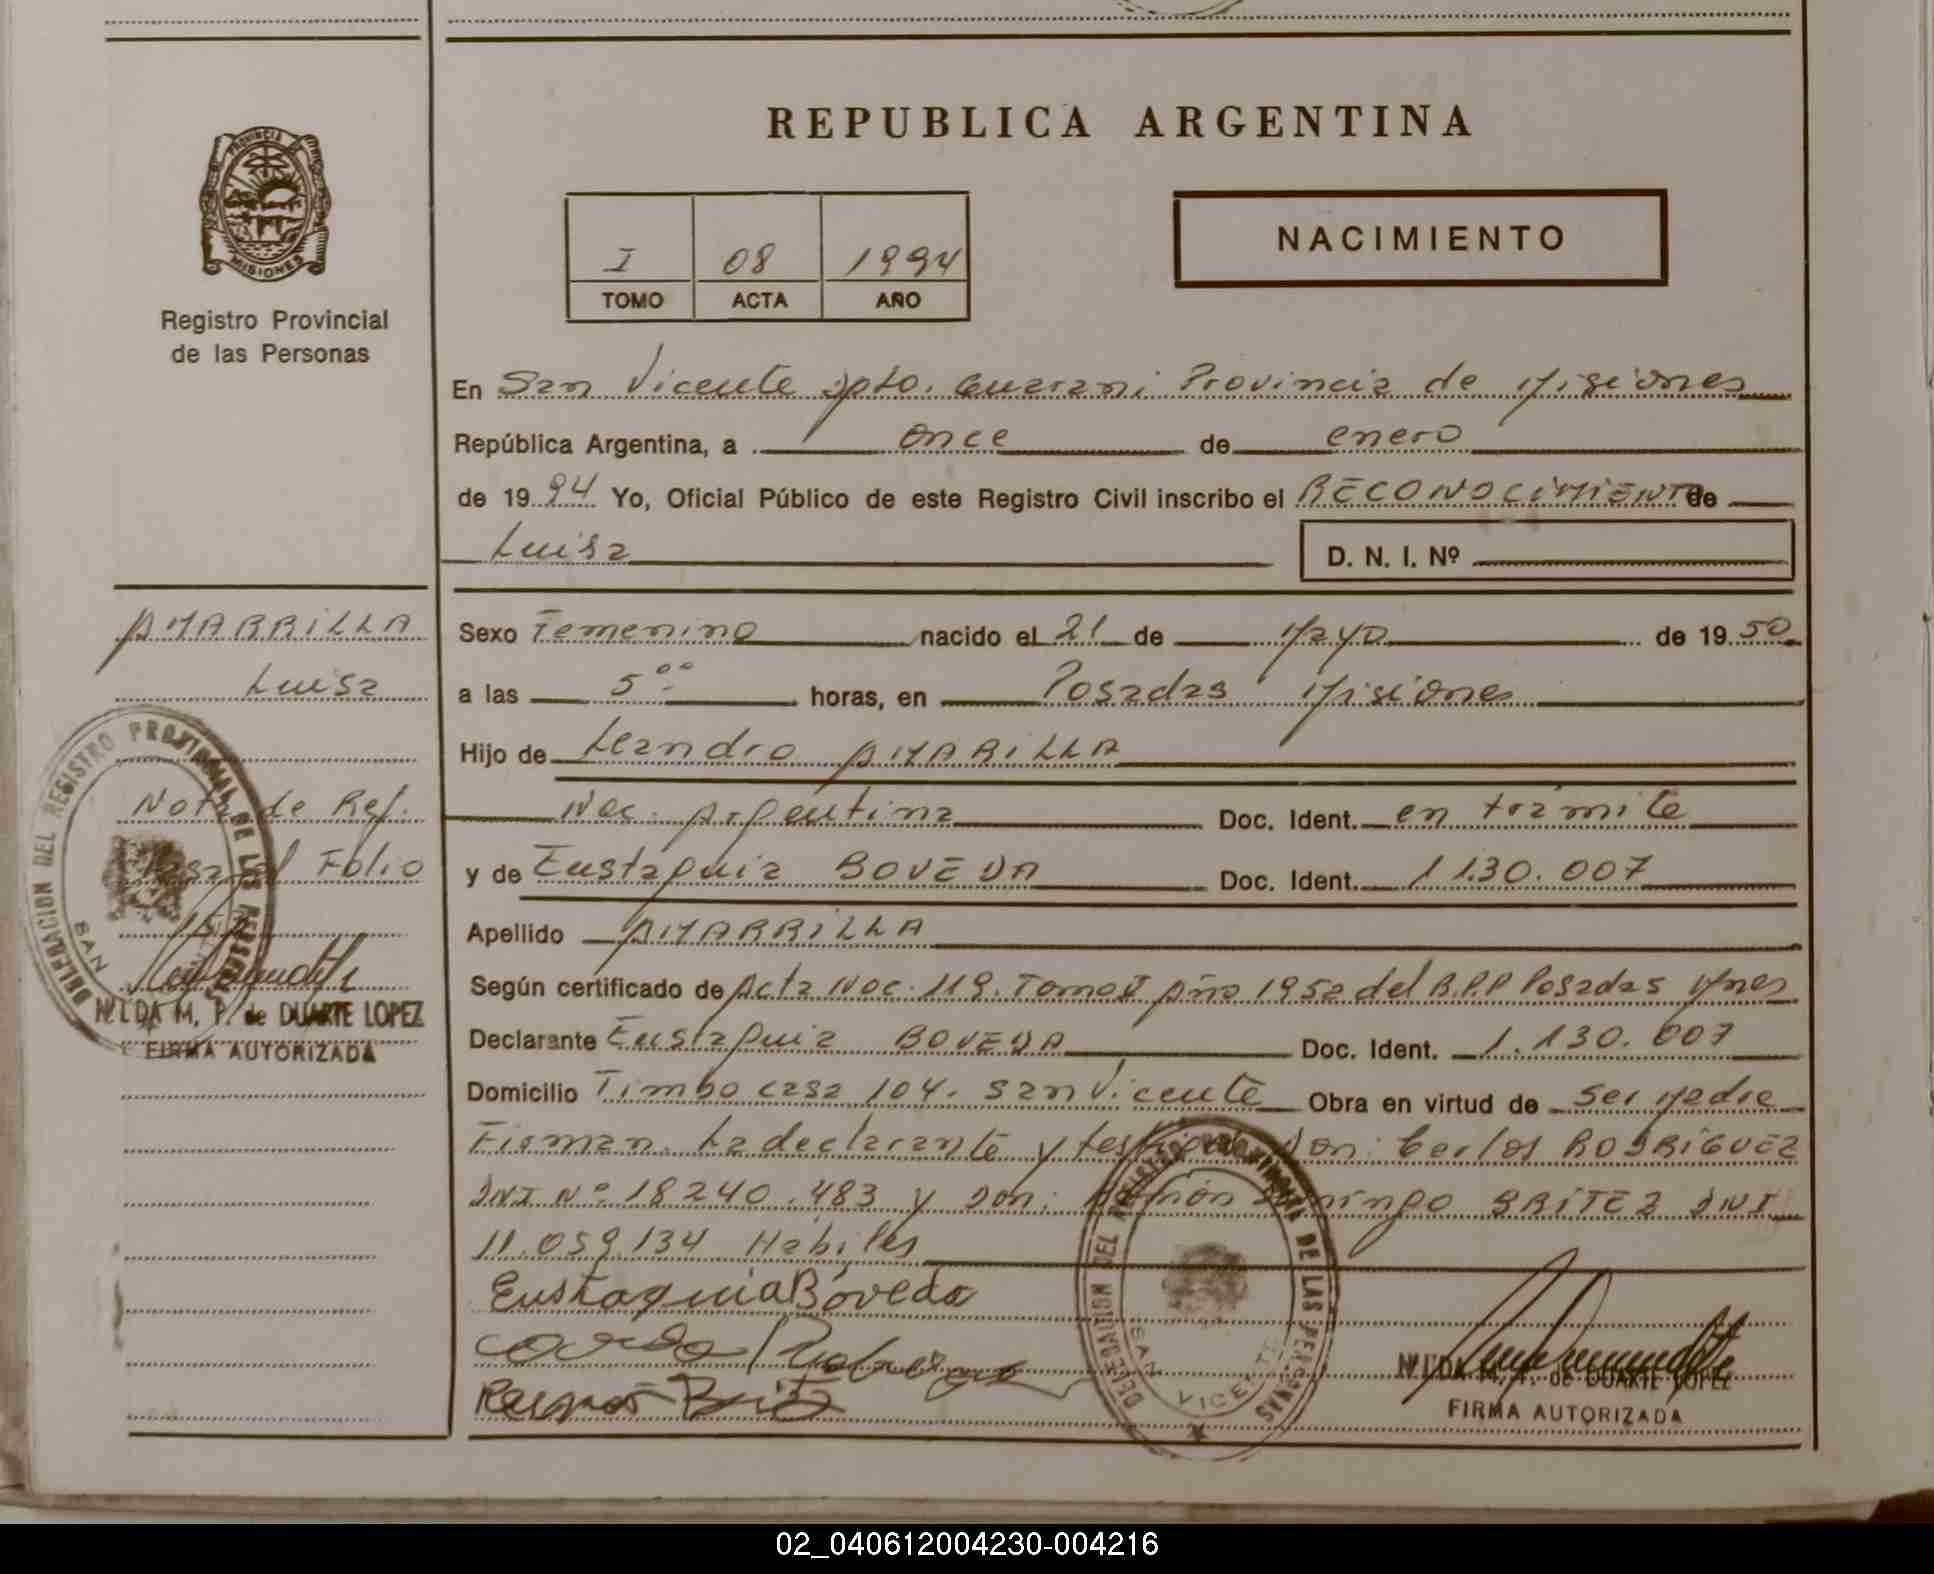 REPUBLICA ARGENTINA
PROVINCIA DE
MISIONES
Registro Provincial
de las Personas
I 08 1994
TOMO ACTA AÑO
NACIMIENTO
En San Vicente Dpto. Guarani Provincia de Misiones
República Argentina, a once de enero
de 1994 Yo, Oficial Público de este Registro Civil inscribo el RECONOCIMIENTO de
Luisa
D. N. I. Nº
AMARRILLA
Luisa
Nota de Ref.
Pasa al Folio
NILDA M. P. de DUARTE LOPEZ
FIRMA AUTORIZADA
DELEGACION DEL REGISTRO PROVINCIAL DE LAS PERSONAS
SAN VICENTE
Sexo Femenino nacido el 21 de Mayo de 1950
a las 5°° horas, en Posadas Misiones
Hijo de Leandro AMARILLA
Nac. Argentina Doc. Ident. en trámite
y de Eustaquia BOVEDA Doc. Ident. 1130.007
Apellido AMARRILLA
Según certificado de Acta Nac. 119. Tomo I Año 1952 del R.P.P Posadas Mnes
Declarante Eustaquia BOVEDA Doc. Ident. 1.130.007
Domicilio Timbo casa 104. San Vicente Obra en virtud de ser Madre
Firman. La declarante y testigos Don: Carlos RODRIGUEZ
DNI Nº 18240.483 y Don: Ramón Domingo BRITEZ DNI
11.059.134 Hábiles
Eustaquia Bóveda
Ramón Britez
DELEGACION DEL REGISTRO PROVINCIAL DE LAS PERSONAS
SAN VICENTE
NILDA M. P. de DUARTE LOPEZ
FIRMA AUTORIZADA
02_040612004230-004216